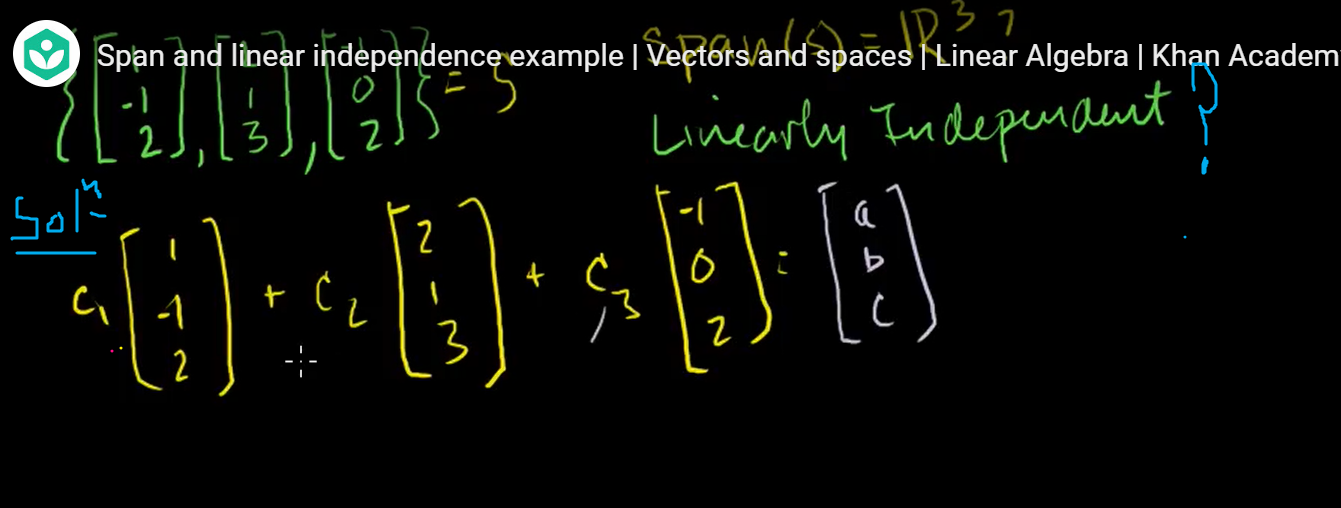 Span and linear independence example | Vectors and spaces | Linear Algebra | Khan Academ
span(s) = R³?
{[ -1 2 ], [ 1 3 ], [ 0 2 ]} = S
Linearly Independent ?
Solⁿ
c₁ [ 1 -1 2 ] + c₂ [ 2 1 3 ] + c₃ [ -1 0 2 ] = [ a b c ]